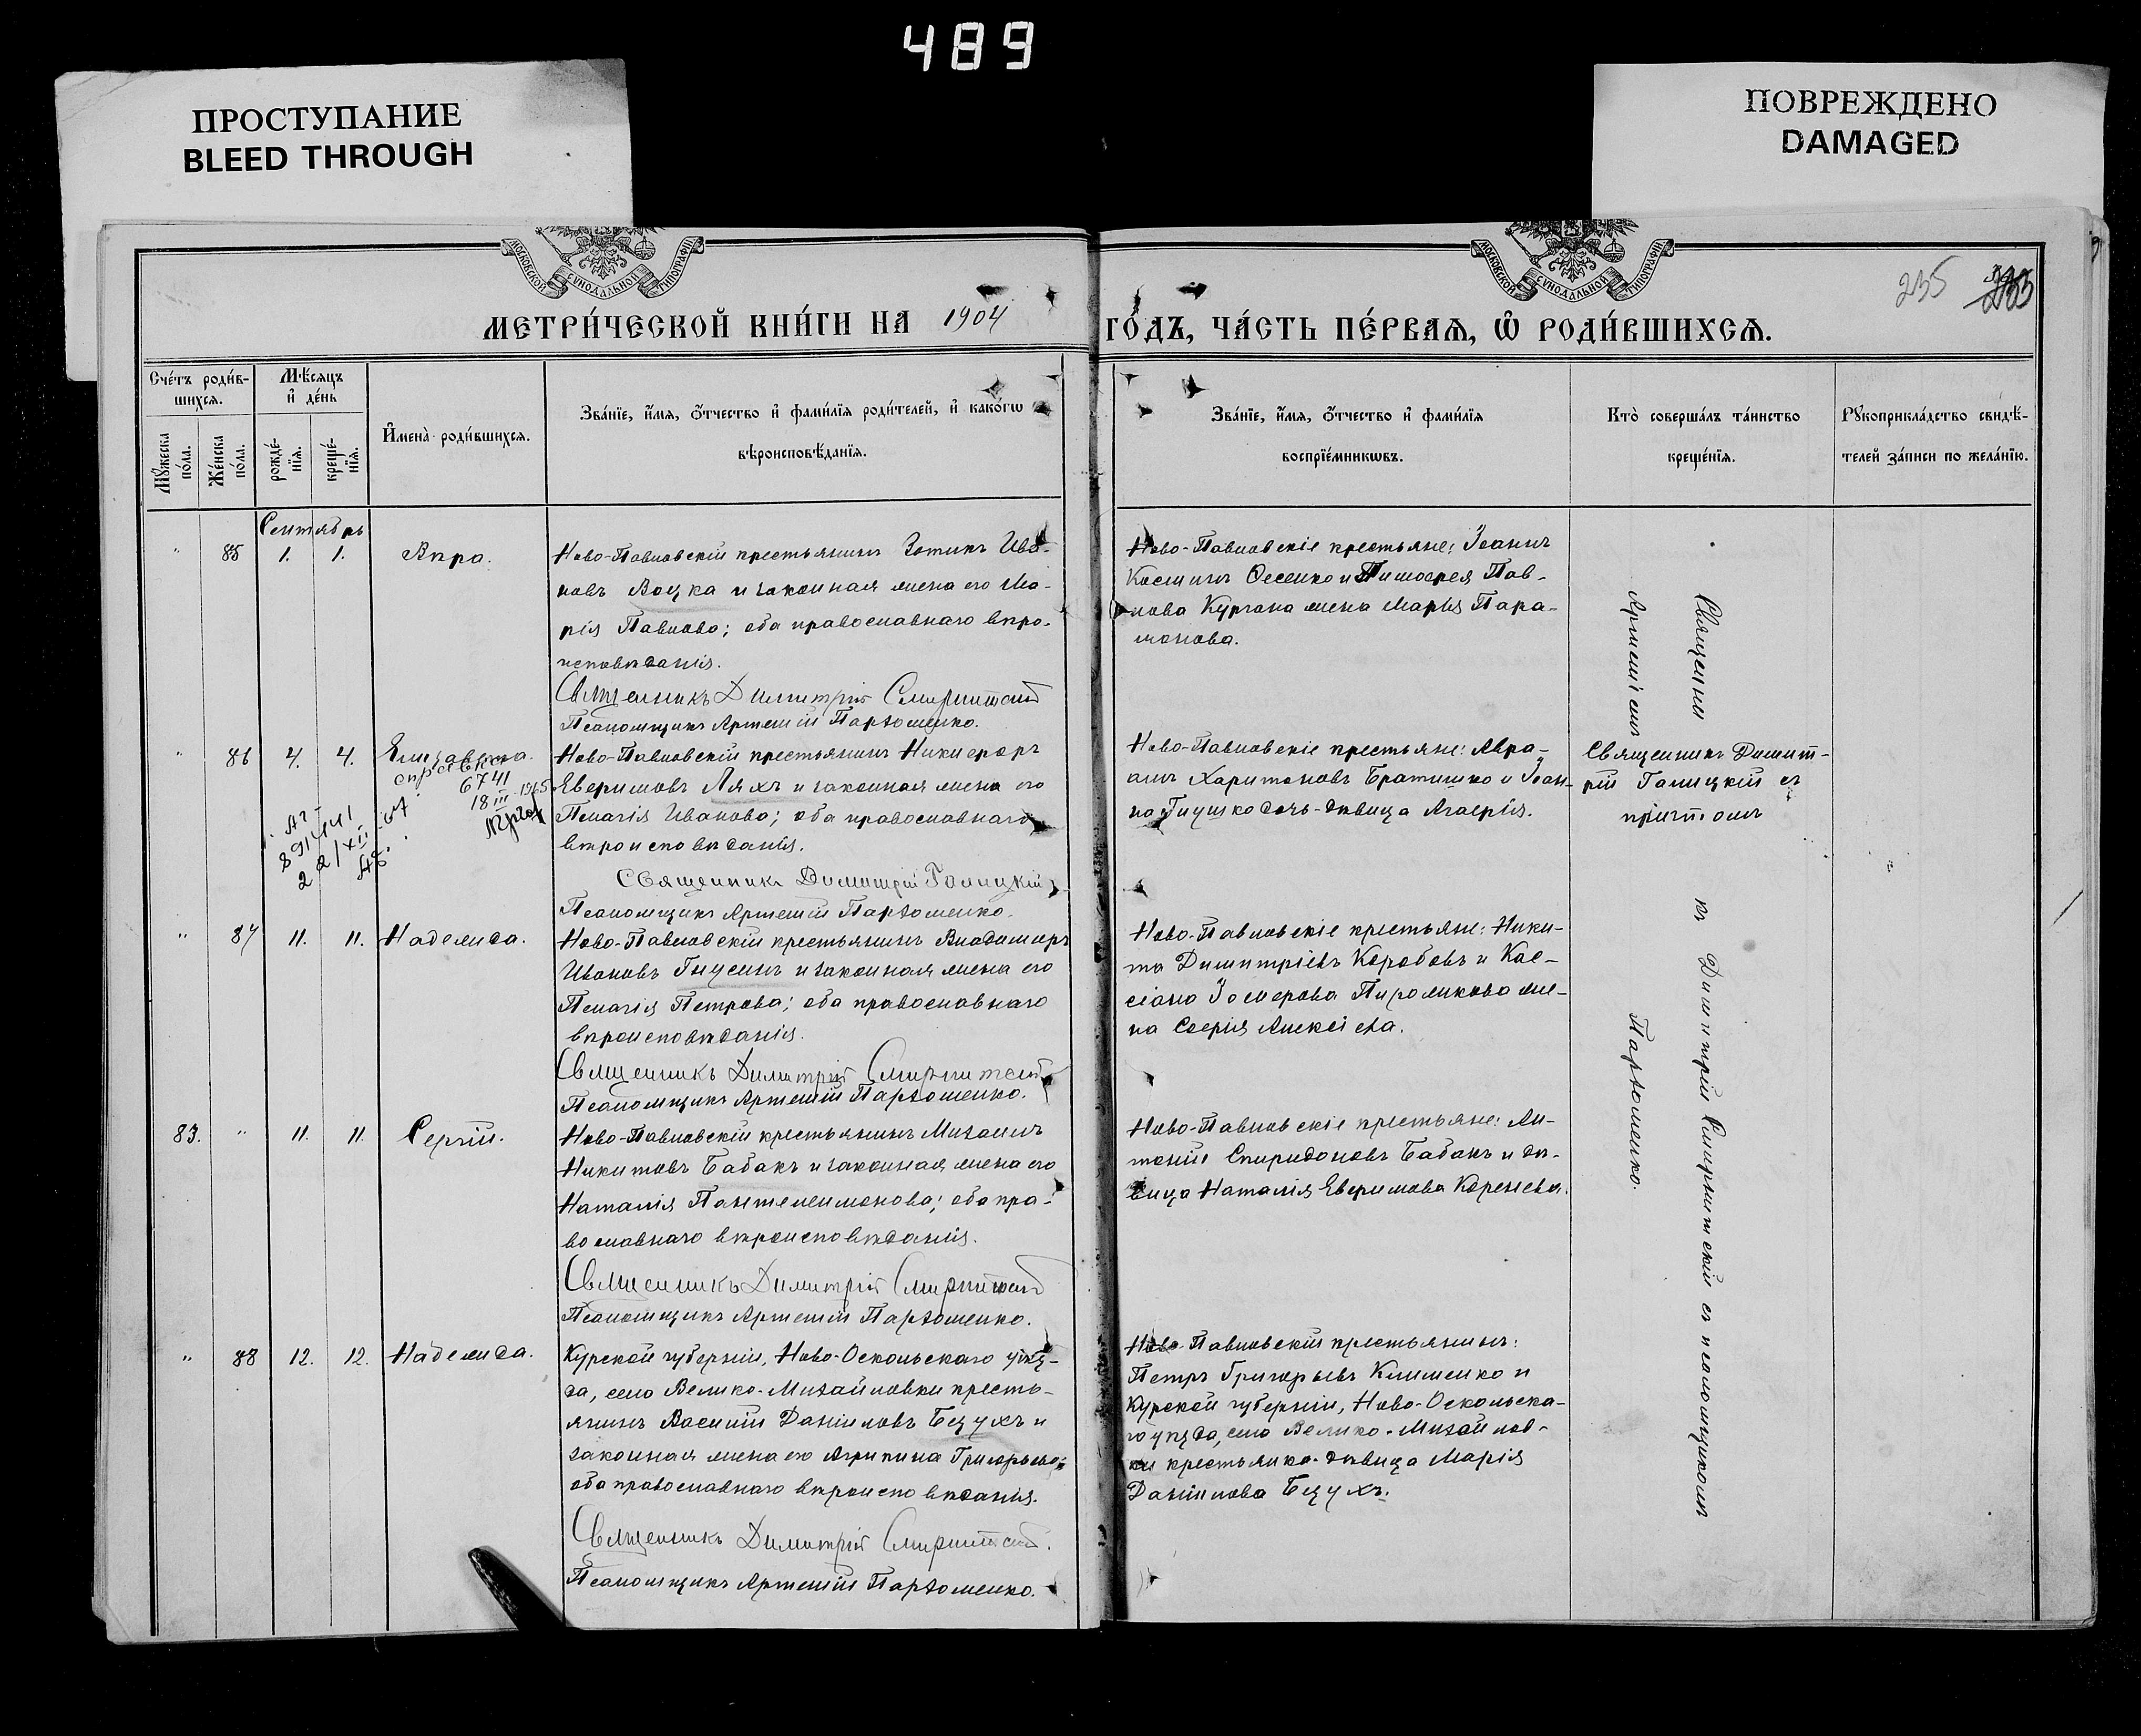 489
ПРОСТУПАНИЕ
BLEED THROUGH
ПОВРЕЖДЕНО
DAMAGED
МОСКОВСКОЙ СѴНОДАЛЬНОЙ ТИПОГРАФІИ
МОСКОВСКОЙ СѴНОДАЛЬНОЙ ТИПОГРАФІИ
235
МЕТРИ́ЧЕСКОЙ КНИ́ГИ НА 1904 ГО́ДЪ, ЧА́СТЬ ПЕ́РВАѦ, Ѿ РОДИ́ВШИХСѦ.
Сче́тъ роди́в-
шихсѧ.
Мꙋ́жеска по́ла.
Же́нска по́ла.
Мѣ́сѧцъ и҆ де́нь
рожде́-нїѧ.
креще́-нїѧ.
И҆мена̀ роди́вшихсѧ.
Зва́нїе, и҆́мѧ, ѻ҆́тчество и҆ фами́лїѧ роди́телей, и҆ како́гѡ
вѣроисповѣ́данїѧ.
Зва́нїе, и҆́мѧ, ѻ҆́тчество и҆ фами́лїѧ
воспрїе́мникѡвъ.
Кто̀ соверша́лъ та́инство
креще́нїѧ.
Рꙋкоприкла́дство свидѣ́-
телей за́писи по жела́нїю.
Сентябрь
" 85 1. 1. Вѣра.
Ново-Павловскій крестьянинъ Зотикъ Ива-
новъ Воцка и законная жена его Ма-
рія Павлова; оба православнаго вѣро-
исповѣданія.
Священникъ Димитрій Смирнитскій
Псаломщикъ Артемій Пархоменко.
Ново-Павловскіе крестьяне: Іоаннъ
Косминъ Осенко и Тимофея Пав-
лова Кургана жена Марія Пара-
монова.
" 86 4. 4. Елизавета.
справка
6741
18 III 1945
Ново-Павловскій крестьянинъ Никифоръ
Евфимовъ Ляхъ и законная жена его
Пелагія Иванова; оба православнаго
вѣроисповѣданія.
Священникъ Димитрій Галицкій
Псаломщикъ Артемій Пархоменко.
Ново-Павловскіе крестьяне: Авра-
амъ Харитоновъ Братишко и Іоан-
на Глушко дочь-дѣвица Агафія.
Священникъ Димит-
рій Галицкій съ
причтомъ
" 87 11. 11. Надежда.
Ново-Павловскій крестьянинъ Владимиръ
Ивановъ Гнусинъ и законная жена его
Пелагія Петрова; оба православнаго
вѣроисповѣданія.
Священникъ Димитрій Смирнитскій
Псаломщикъ Артемій Пархоменко.
Ново-Павловскіе крестьяне: Ники-
та Димитріевъ Коробовъ и Кас-
сіана Іосифова Пирожкова же-
на Софія Алексіева.
83. " 11. 11. Сергій.
Ново-Павловскій крестьянинъ Михаилъ
Никитовъ Бабакъ и законная жена его
Наталія Пантелеимонова; оба пра-
вославнаго вѣроисповѣданія.
Священникъ Димитрій Смирнитскій
Псаломщикъ Артемій Пархоменко.
Ново-Павловскіе крестьяне: Ан-
тоній Спиридоновъ Бабакъ и дѣ-
вица Наталія Евфимова Коренева.
" 88 12. 12. Надежда.
Курской губерніи, Ново-Оскольскаго уѣз-
да, села Велико-Михайловки кресть-
янинъ Василій Даніиловъ Бецухъ и
законная жена его Агрипина Григорьева;
оба православнаго вѣроисповѣданія.
Священникъ Димитрій Смирнитскій.
Псаломщикъ Артемій Пархоменко.
Ново-Павловскій крестьянинъ:
Петръ Григорьевъ Клименко и
Курской губерніи, Ново-Оскольска-
го уѣзда, села Велико-Михайлов-
ки крестьянка-дѣвица Марія
Даніилова Бецухъ.
Священникъ Димитрій Смирнитскій съ псаломщикомъ
Артеміемъ Пархоменко.